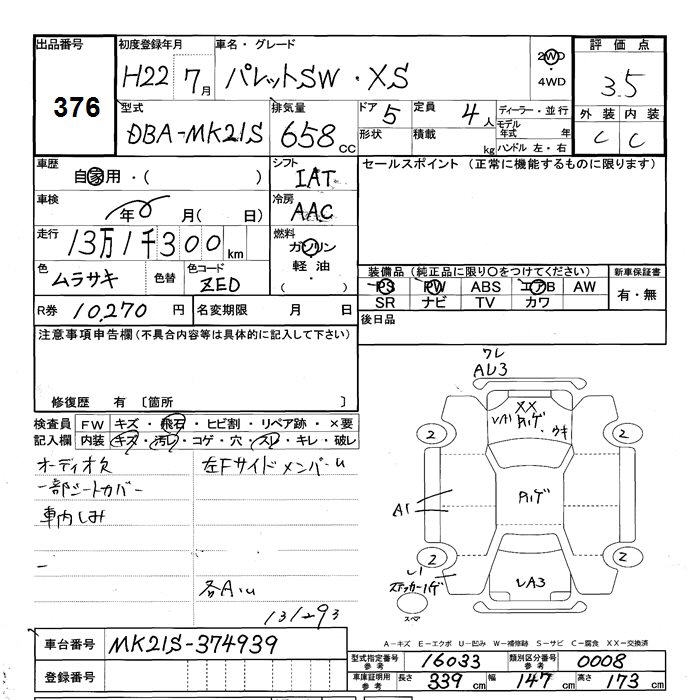 出品番号 初度登録年月 車名・グレード 評価点
376 H22 7月 パレットSW・XS 2WD・4WD 3.5
型式 排気量 ドア 5 定員 4人 ディーラー・並行 外装 内装
DBA-MK21S 658cc 形状 積載 kg モデル年式 年 C C
ハンドル 左・右
車歴 自家用・( ) シフト IAT セールスポイント (正常に機能するものに限ります)
車検 年 月( 日) 冷房 AAC
走行 13万1千300km 燃料 ガソリン 軽油・( )
色 ムラサキ 色替 色コード ZED 装備品 (純正品に限り〇をつけてください) 新車保証書
PS PW ABS エアB AW 有・無
SR ナビ TV カワ
R券 10,270円 名変期限 月 日 後日品
注意事項申告欄 (不具合内容等は具体的に記入して下さい)
修復歴 有 〔箇所 〕
検査員 FW キズ・飛石・ヒビ割・リペア跡・×要
記入欄 内装 キズ・汚レ・コゲ・穴・スレ・キレ・破レ
オーディオ欠 左Fサイドメンバーu
一部シートカバー
車内しみ
各A・u
131293
ワレ
AU3
XX
ハゲ ウキ
2 2
A1 ハゲ
2 2
ステッカーハゲ
スペア
A-キズ E-エクボ U-凹み W-補修跡 S-サビ C-腐食 XX-交換済
車台番号 MK21S-374939
登録番号
型式指定番号 参考 16033 類別区分番号 参考 0008
車庫証明用 参考 長さ 339cm 幅 147cm 高さ 173cm